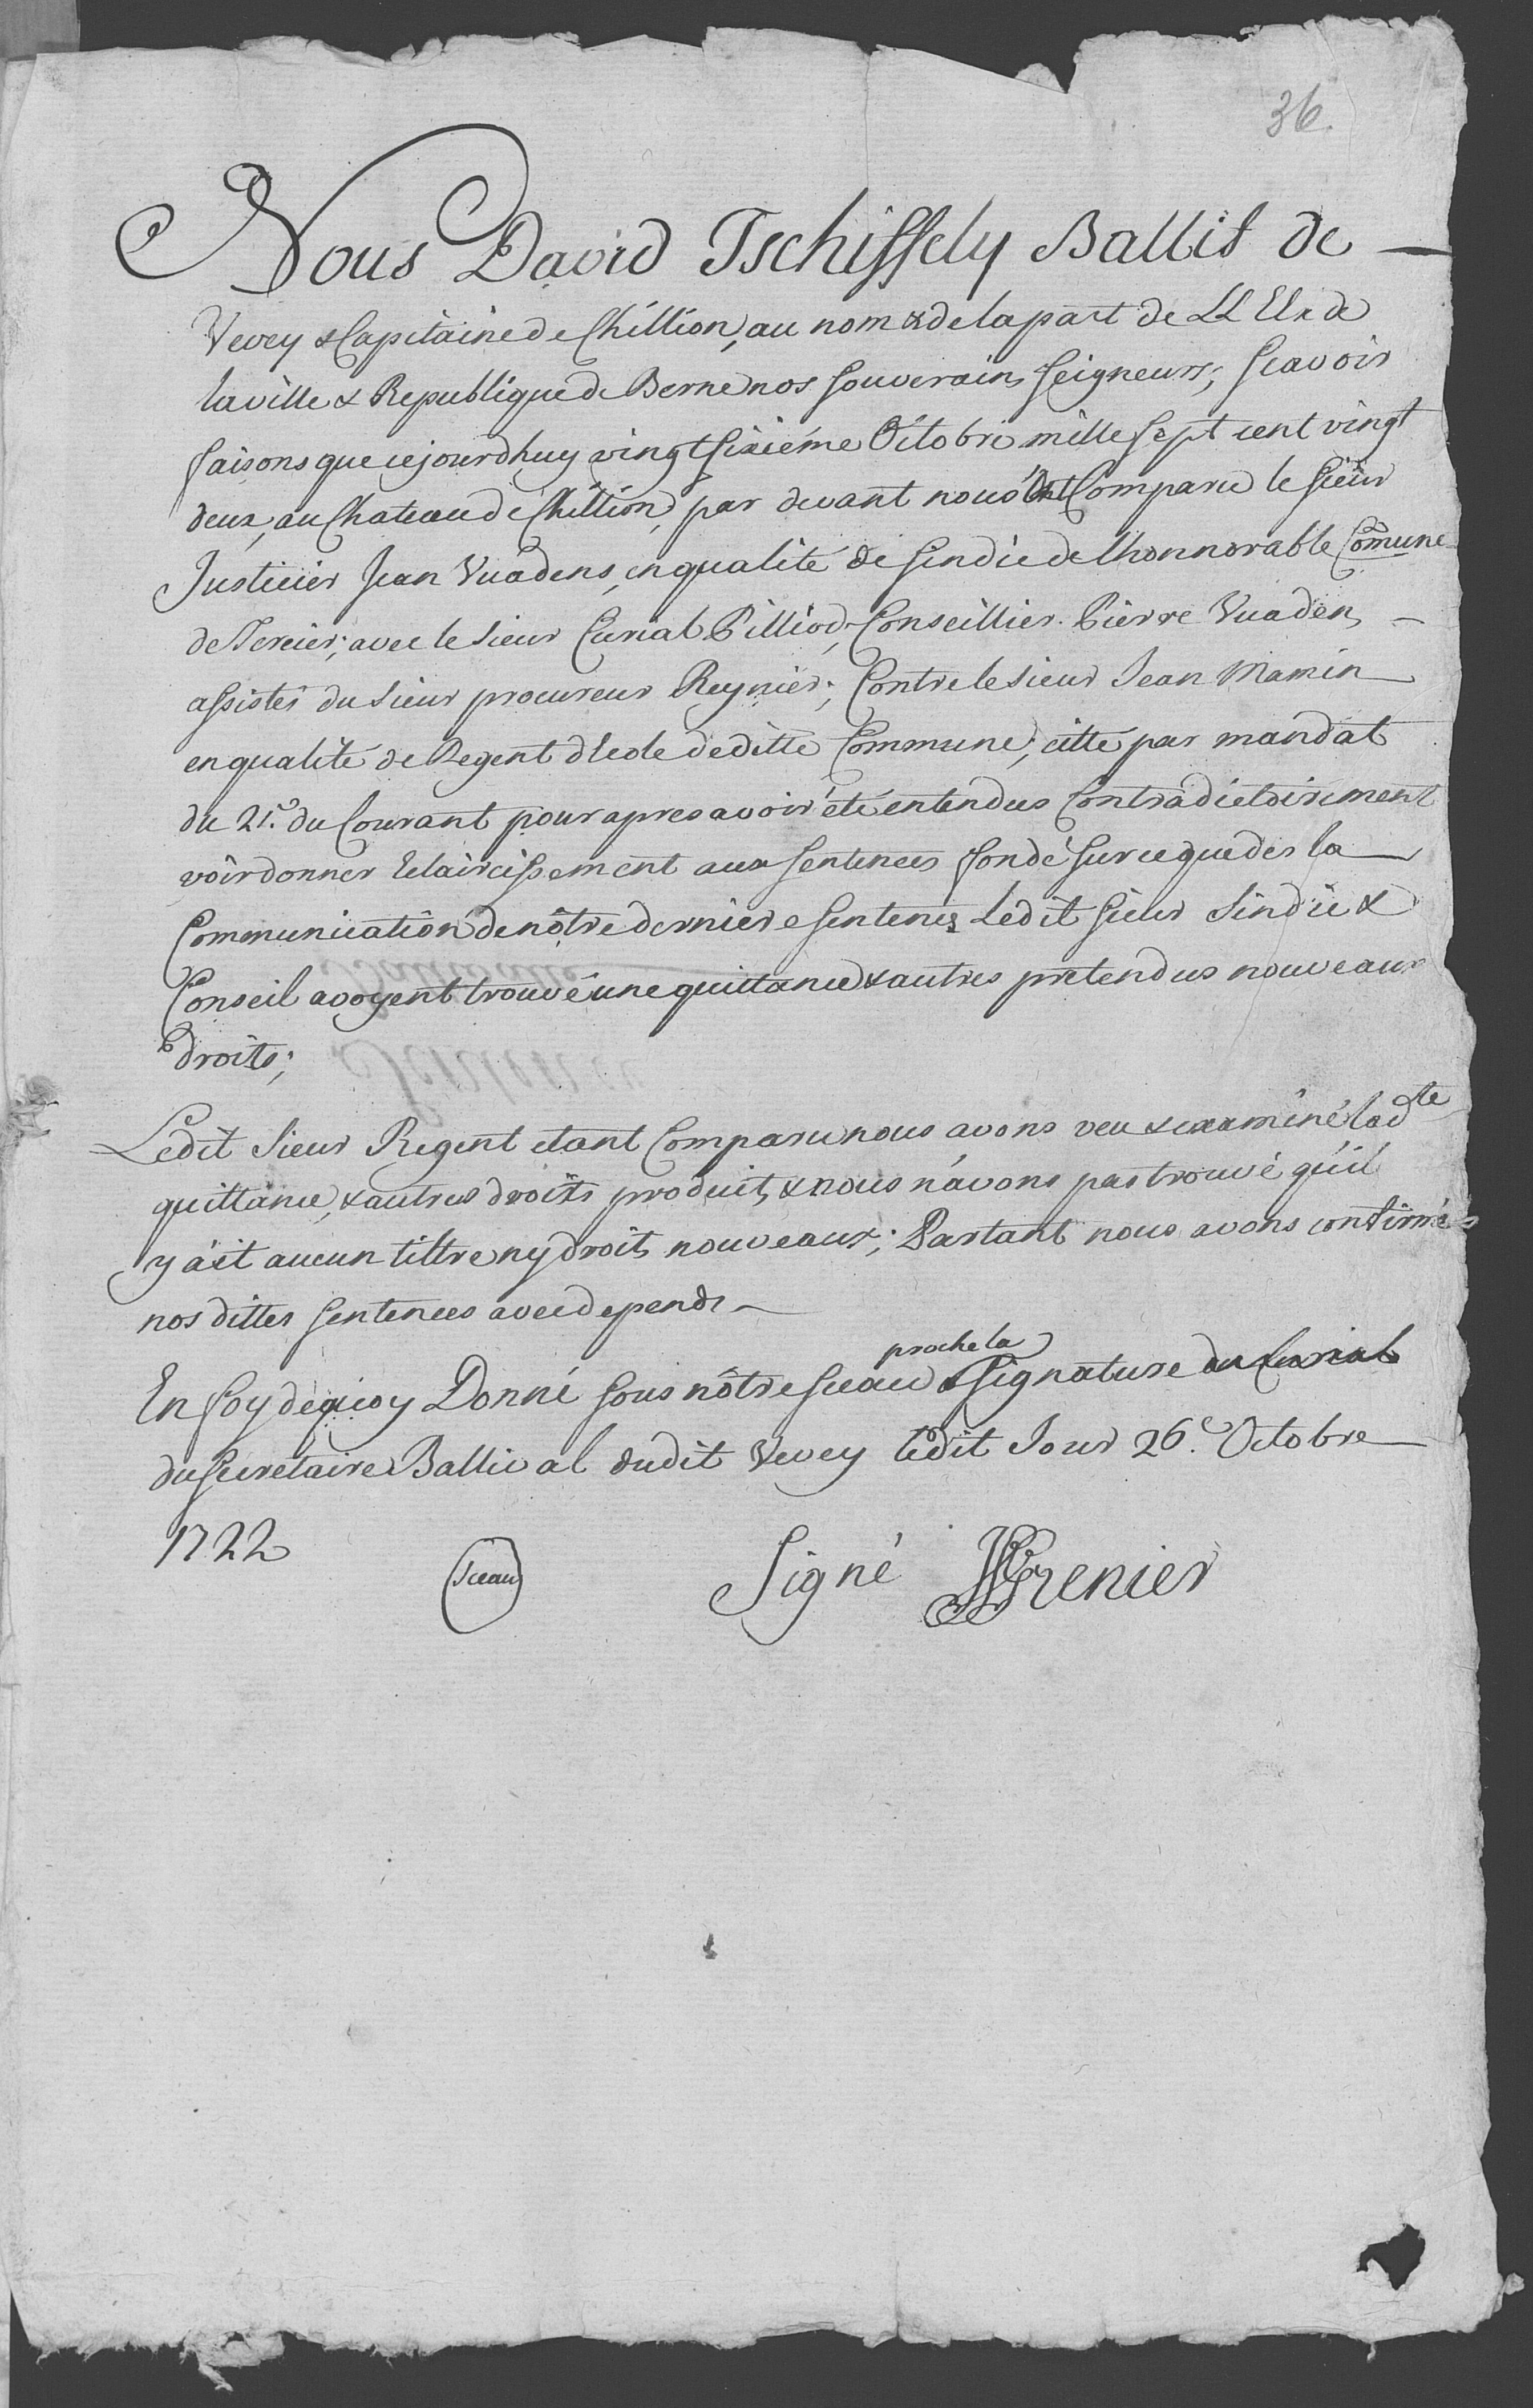 36.
Nous David Tschiffely Ballif de
Vevey & Capitaine de Chillion, au nom & de la part de LL EEx de
la ville & Republique de Berne nos souverains seigneurs; scavoir
faisons que cejourdhuy vingt sixiéme Octobre mille sept cent vingt
deux, au Chateau de Chillion, par devant nous Ont Comparu le sieur
Justicier Jean Vuadens, en qualité de sindic de lhonnorable Comune
de Tercier; avec le sieur Curial Pilliod, Conseillier Pierre Vuadens
assistés du sieur procureur Reynier; Contre le sieur Jean Mamin
en qualité de Regent dEcole de ditte Commune; citté par mandat
du 21.e du Courant pour apres avoir été entendus Contradictoirement
voir donner Eclaircissement aux sentences fondé sur ce que dès la
Communication de nôtre derniere sentence Ledit sieur Sindic &
Conseil avoyent trouvé une quittance & autres pretendus nouveaux
droits;
Ledit sieur Regent etant Comparu nous avons veu & examiné lad.te
quittance, & autres droits produits, & nous n'avons pas trouvé qu'il
y ait aucun tiltre ny droits nouveaux; Partant nous avons confirmés
nos dittes sentences avec depends
En foy de quoy Donné sous nôtre sceau & proche la signature du Curial
du secretaire Ballival dudit Vevey ledit Jour 26.e Octobre
1722
Sceau Signé Grenier